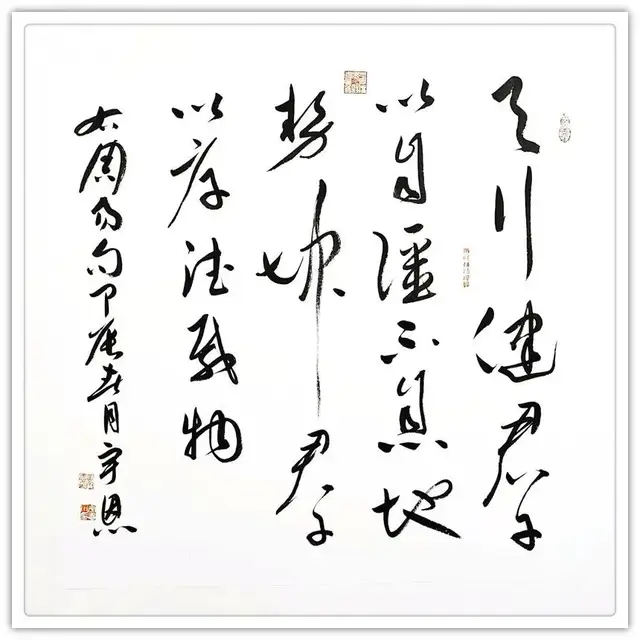 天行健君子
以自彊不息地
势坤君子
以厚德载物
右周易句甲辰春月宇恩